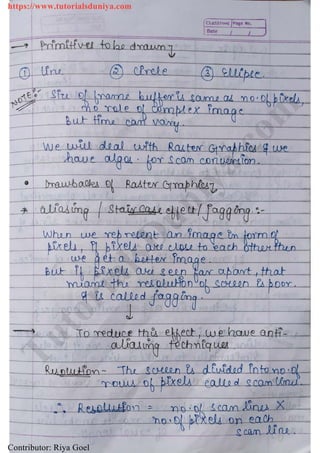 https://www.tutorialsduniya.com
Classmate Page No.
Date / /
→ Primitives to be drawn ↴
① line ② Circle ③ Ellipse.
NOTE:- Size of frame buffer is same as no. of pixels,
no role of complex image
But time can vary.
We will deal with Raster Graphics & we
have algos. for scan conversion.
• Drawbacks of Raster Graphics ↴
* aliasing / Stair Case effect / Jagging :-
When we represent an image in form of
pixels, If pixels are close to each other then
we get a better image.
But if pixels are seen far apart, that
means the resolution of screen is poor.
It is called jagging.
↓
→ To reduce this effect, we have anti-
aliasing techniques
Resolution - The screen is divided into no. of
rows of pixels called scan lines.
∴ Resolution = no. of scan lines X
no. of pixels on each
scan line.
Contributor: Riya Goel